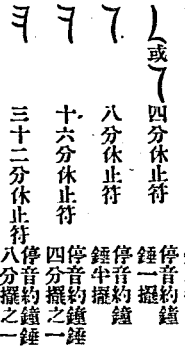 或
四分休止符
停音約鐘
錘一擺
八分休止符
停音約鐘
錘半擺
十六分休止符
停音約鐘錘
四分擺之一
三十二分休止符
停音約鐘錘
八分擺之一